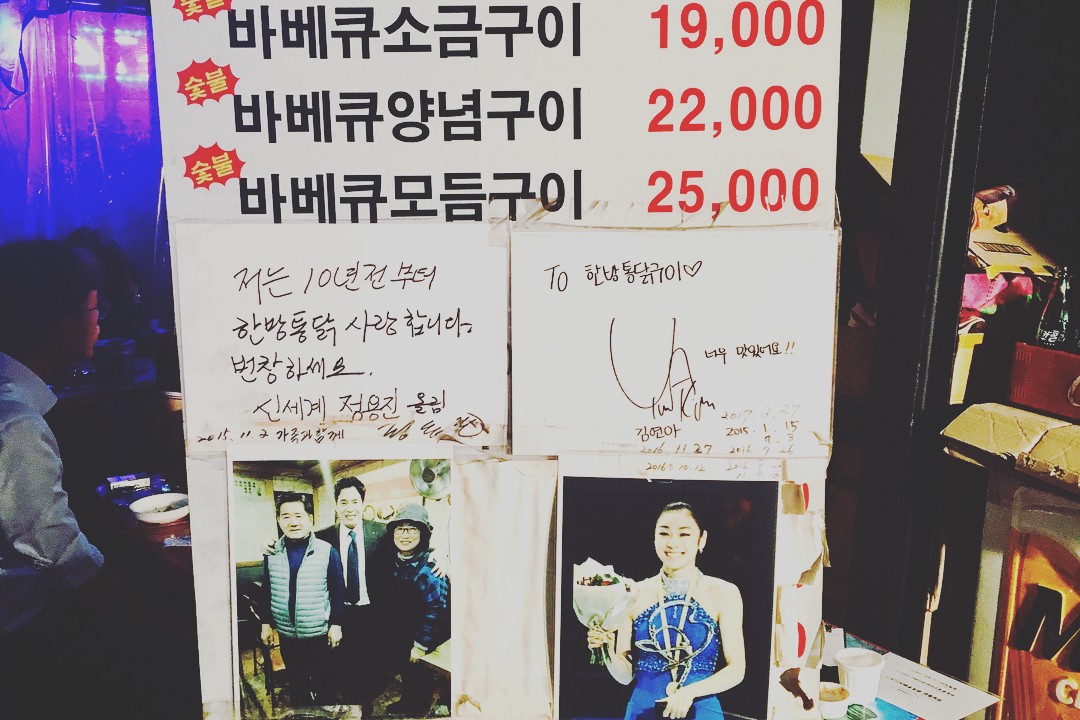 숯불 바베큐소금구이 19,000
숯불 바베큐양념구이 22,000
숯불 바베큐모듬구이 25,000
저는 10년전 부터
한방통닭 사랑합니다.
번창하세요.
신세계 정용진 올림
2015.11.2 가족과함께
TO 한방통닭구이♡
너무 맛있어요!!
Yun Kim
김연아
2017 3.27
2015.1.15
2016.11.27
2016.10.12